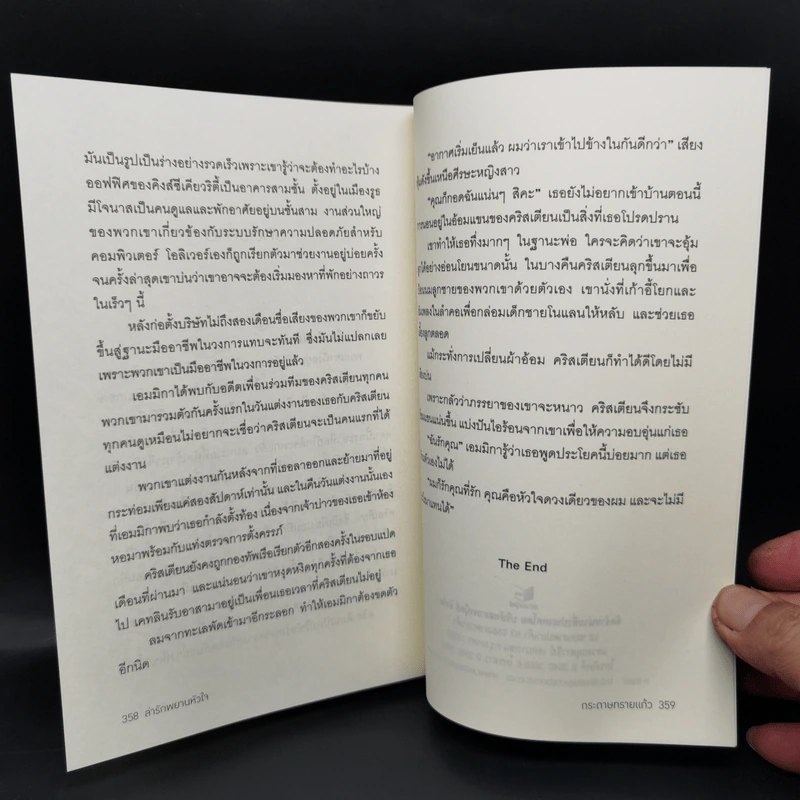 มันเป็นรูปเป็นร่างอย่างรวดเร็วเพราะเขารู้ว่าจะต้องทำอะไรบ้าง
ออฟฟิศของคิงส์ซีเคียวริตี้เป็นอาคารสามชั้น ตั้งอยู่ในเมืองรูธ
มีโจนาสเป็นคนดูแลและพักอาศัยอยู่บนชั้นสาม งานส่วนใหญ่
ของพวกเขาเกี่ยวข้องกับระบบรักษาความปลอดภัยสำหรับ
คอมพิวเตอร์ โอลิเวอร์เองก็ถูกเรียกตัวมาช่วยงานอยู่บ่อยครั้ง
จนครั้งล่าสุดเขาบ่นว่าเขาอาจจะต้องเริ่มมองหาที่พักอย่างถาวร
ในเร็วๆ นี้
หลังก่อตั้งบริษัทไม่ถึงสองเดือนชื่อเสียงของพวกเขาก็ขยับ
ขึ้นสู่ฐานะมืออาชีพในวงการแทบจะทันที ซึ่งมันไม่แปลกเลย
เพราะพวกเขาเป็นมืออาชีพในวงการอยู่แล้ว
เอมมิกาได้พบกับอดีตเพื่อนร่วมทีมของคริสเตียนทุกคน
พวกเขามารวมตัวกันครั้งแรกในวันแต่งงานของเธอกับคริสเตียน
ทุกคนดูเหมือนไม่อยากจะเชื่อว่าคริสเตียนจะเป็นคนแรกที่ได้
แต่งงาน
พวกเขาแต่งงานกันหลังจากที่เธอลาออกและย้ายมาที่อยู่
กระท่อมเพียงแค่สองสัปดาห์เท่านั้น และในคืนวันแต่งงานนั้นเอง
ที่เอมมิกาพบว่าเธอกำลังตั้งท้อง เนื่องจากเจ้าบ่าวของเธอเข้าห้อง
หอมาพร้อมกับแท่งตรวจการตั้งครรภ์
คริสเตียนยังคงถูกกองทัพเรือเรียกตัวอีกสองครั้งในรอบแปด
เดือนที่ผ่านมา และแน่นอนว่าเขาหงุดหงิดทุกครั้งที่ต้องจากเธอ
ไป เคทลินรับอาสามาอยู่เป็นเพื่อนเธอเวลาที่คริสเตียนไม่อยู่
ลมจากทะเลพัดเข้ามาอีกระลอก ทำให้เอมมิกาต้องขดตัว
อีกนิด
358 ล่ารักพยานหัวใจ
"อากาศเริ่มเย็นแล้ว ผมว่าเราเข้าไปข้างในกันดีกว่า" เสียง
ดังขึ้นเหนือศีรษะหญิงสาว
"คุณก็กอดฉันแน่นๆ สิคะ" เธอยังไม่อยากเข้าบ้านตอนนี้
นอนอยู่ในอ้อมแขนของคริสเตียนเป็นสิ่งที่เธอโปรดปราน
เขาทำให้เธอทึ่งมากๆ ในฐานะพ่อ ใครจะคิดว่าเขาจะอุ้ม
ได้อย่างอ่อนโยนขนาดนั้น ในบางคืนคริสเตียนลุกขึ้นมาเพื่อ
นมลูกชายของพวกเขาด้วยตัวเอง เขานั่งที่เก้าอี้โยกและ
เพลงในลำคอเพื่อกล่อมเด็กชายโนแลนให้หลับ และช่วยเธอ
ลูกตลอด
แม้กระทั่งการเปลี่ยนผ้าอ้อม คริสเตียนก็ทำได้ดีโดยไม่มี
บ่น
เพราะกลัวว่าภรรยาของเขาจะหนาว คริสเตียนจึงกระชับ
แขนแน่นขึ้น แบ่งปันไอร้อนจากเขาเพื่อให้ความอบอุ่นแก่เธอ
"ฉันรักคุณ" เอมมิการู้ว่าเธอพูดประโยคนี้บ่อยมาก แต่เธอ
ตัวเองไม่ได้
"ผมก็รักคุณที่รัก คุณคือหัวใจดวงเดียวของผม และจะไม่มี
มาแทนได้"
The End
กระดาษทรายแก้ว 359